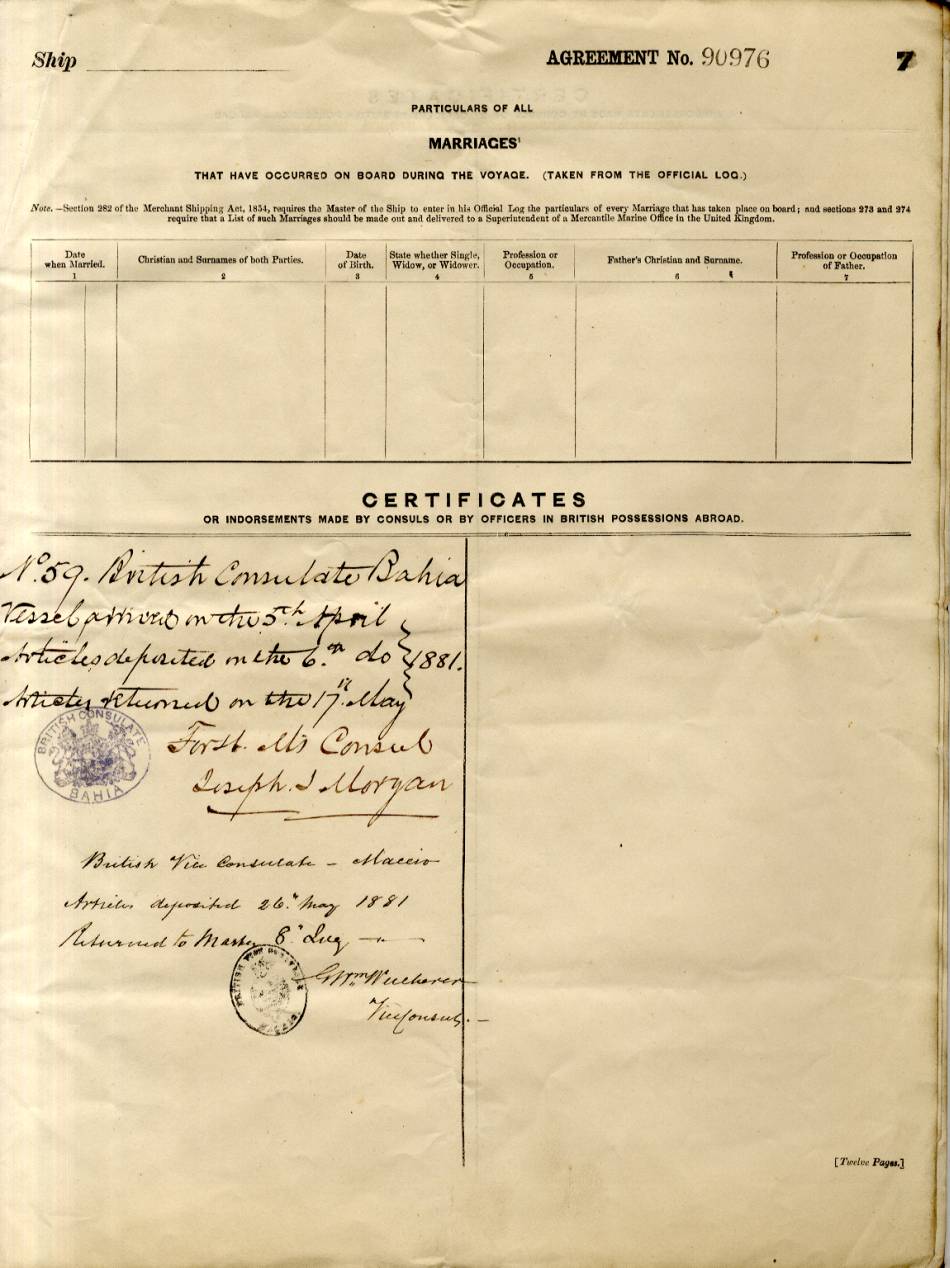 Ship
AGREEMENT No. 90976
7
PARTICULARS OF ALL
MARRIAGES
THAT HAVE OCCURRED ON BOARD DURING THE VOYAGE. (TAKEN FROM THE OFFICIAL LOG.)
Note.—Section 282 of the Merchant Shipping Act, 1854, requires the Master of the Ship to enter in his Official Log the particulars of every Marriage that has taken place on board; and sections 273 and 274
require that a List of such Marriages should be made out and delivered to a Superintendent of a Mercantile Marine Office in the United Kingdom.
Date when Married. 1
Christian and Surnames of both Parties. 2
Date of Birth. 3
State whether Single, Widow, or Widower. 4
Profession or Occupation. 5
Father's Christian and Surname. 6
Profession or Occupation of Father. 7
CERTIFICATES
OR INDORSEMENTS MADE BY CONSULS OR BY OFFICERS IN BRITISH POSSESSIONS ABROAD.
No. 59. British Consulate Bahia
Vessel arrived on the 5th April
Articles deposited on the 6th do 1881.
Articles returned on the 17th May
BRITISH CONSULATE
BAHIA
Consul
Joseph. J Morgan
British Vice Consulate - Maceio
Articles deposited 26th May 1881
Returned to Master 8th
BRITISH VICE CONSULATE
Wm Wucherer
Vice Consul. -
[Twelve Pages.]